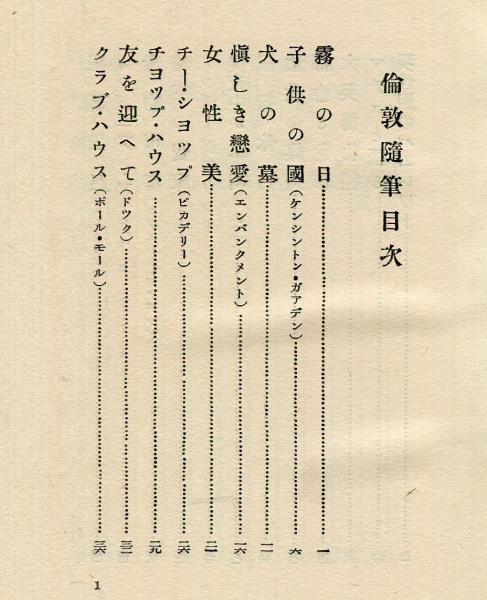 倫敦隨筆目次
霧の日……一
子供の國(ケンシントン・ガアデン)……六
犬の墓……一一
愼しき戀愛(エンバンクメント)……一六
女性美……二一
チー・シヨツプ(ピカデリー)……二六
チヨツプ・ハウス……二九
友を迎へて(ドツク)……三二
クラブ・ハウス(ポール・モール)……三六
1